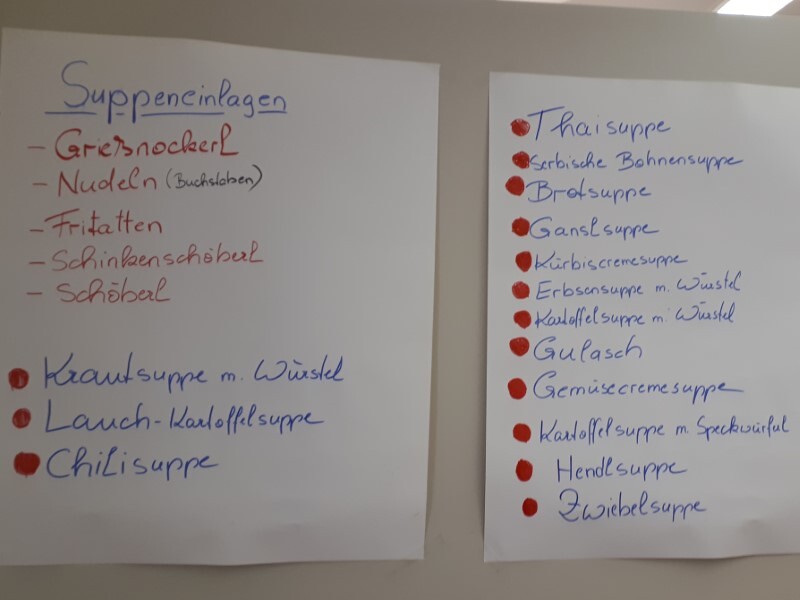 Suppeneinlagen
- Grießnockerl
- Nudeln (Buchstaben)
- Fritatten
- Schinkenschöberl
- Schöberl
Krautsuppe m. Würstel
Lauch-Kartoffelsuppe
Chilisuppe
Thaisuppe
Serbische Bohnensuppe
Brotsuppe
Ganslsuppe
Kürbiscremesuppe
Erbsensuppe m. Würstel
Kartoffelsuppe m. Würstel
Gulasch
Gemüsecremesuppe
Kartoffelsuppe m. Speckwürfel
Hendlsuppe
Zwiebelsuppe